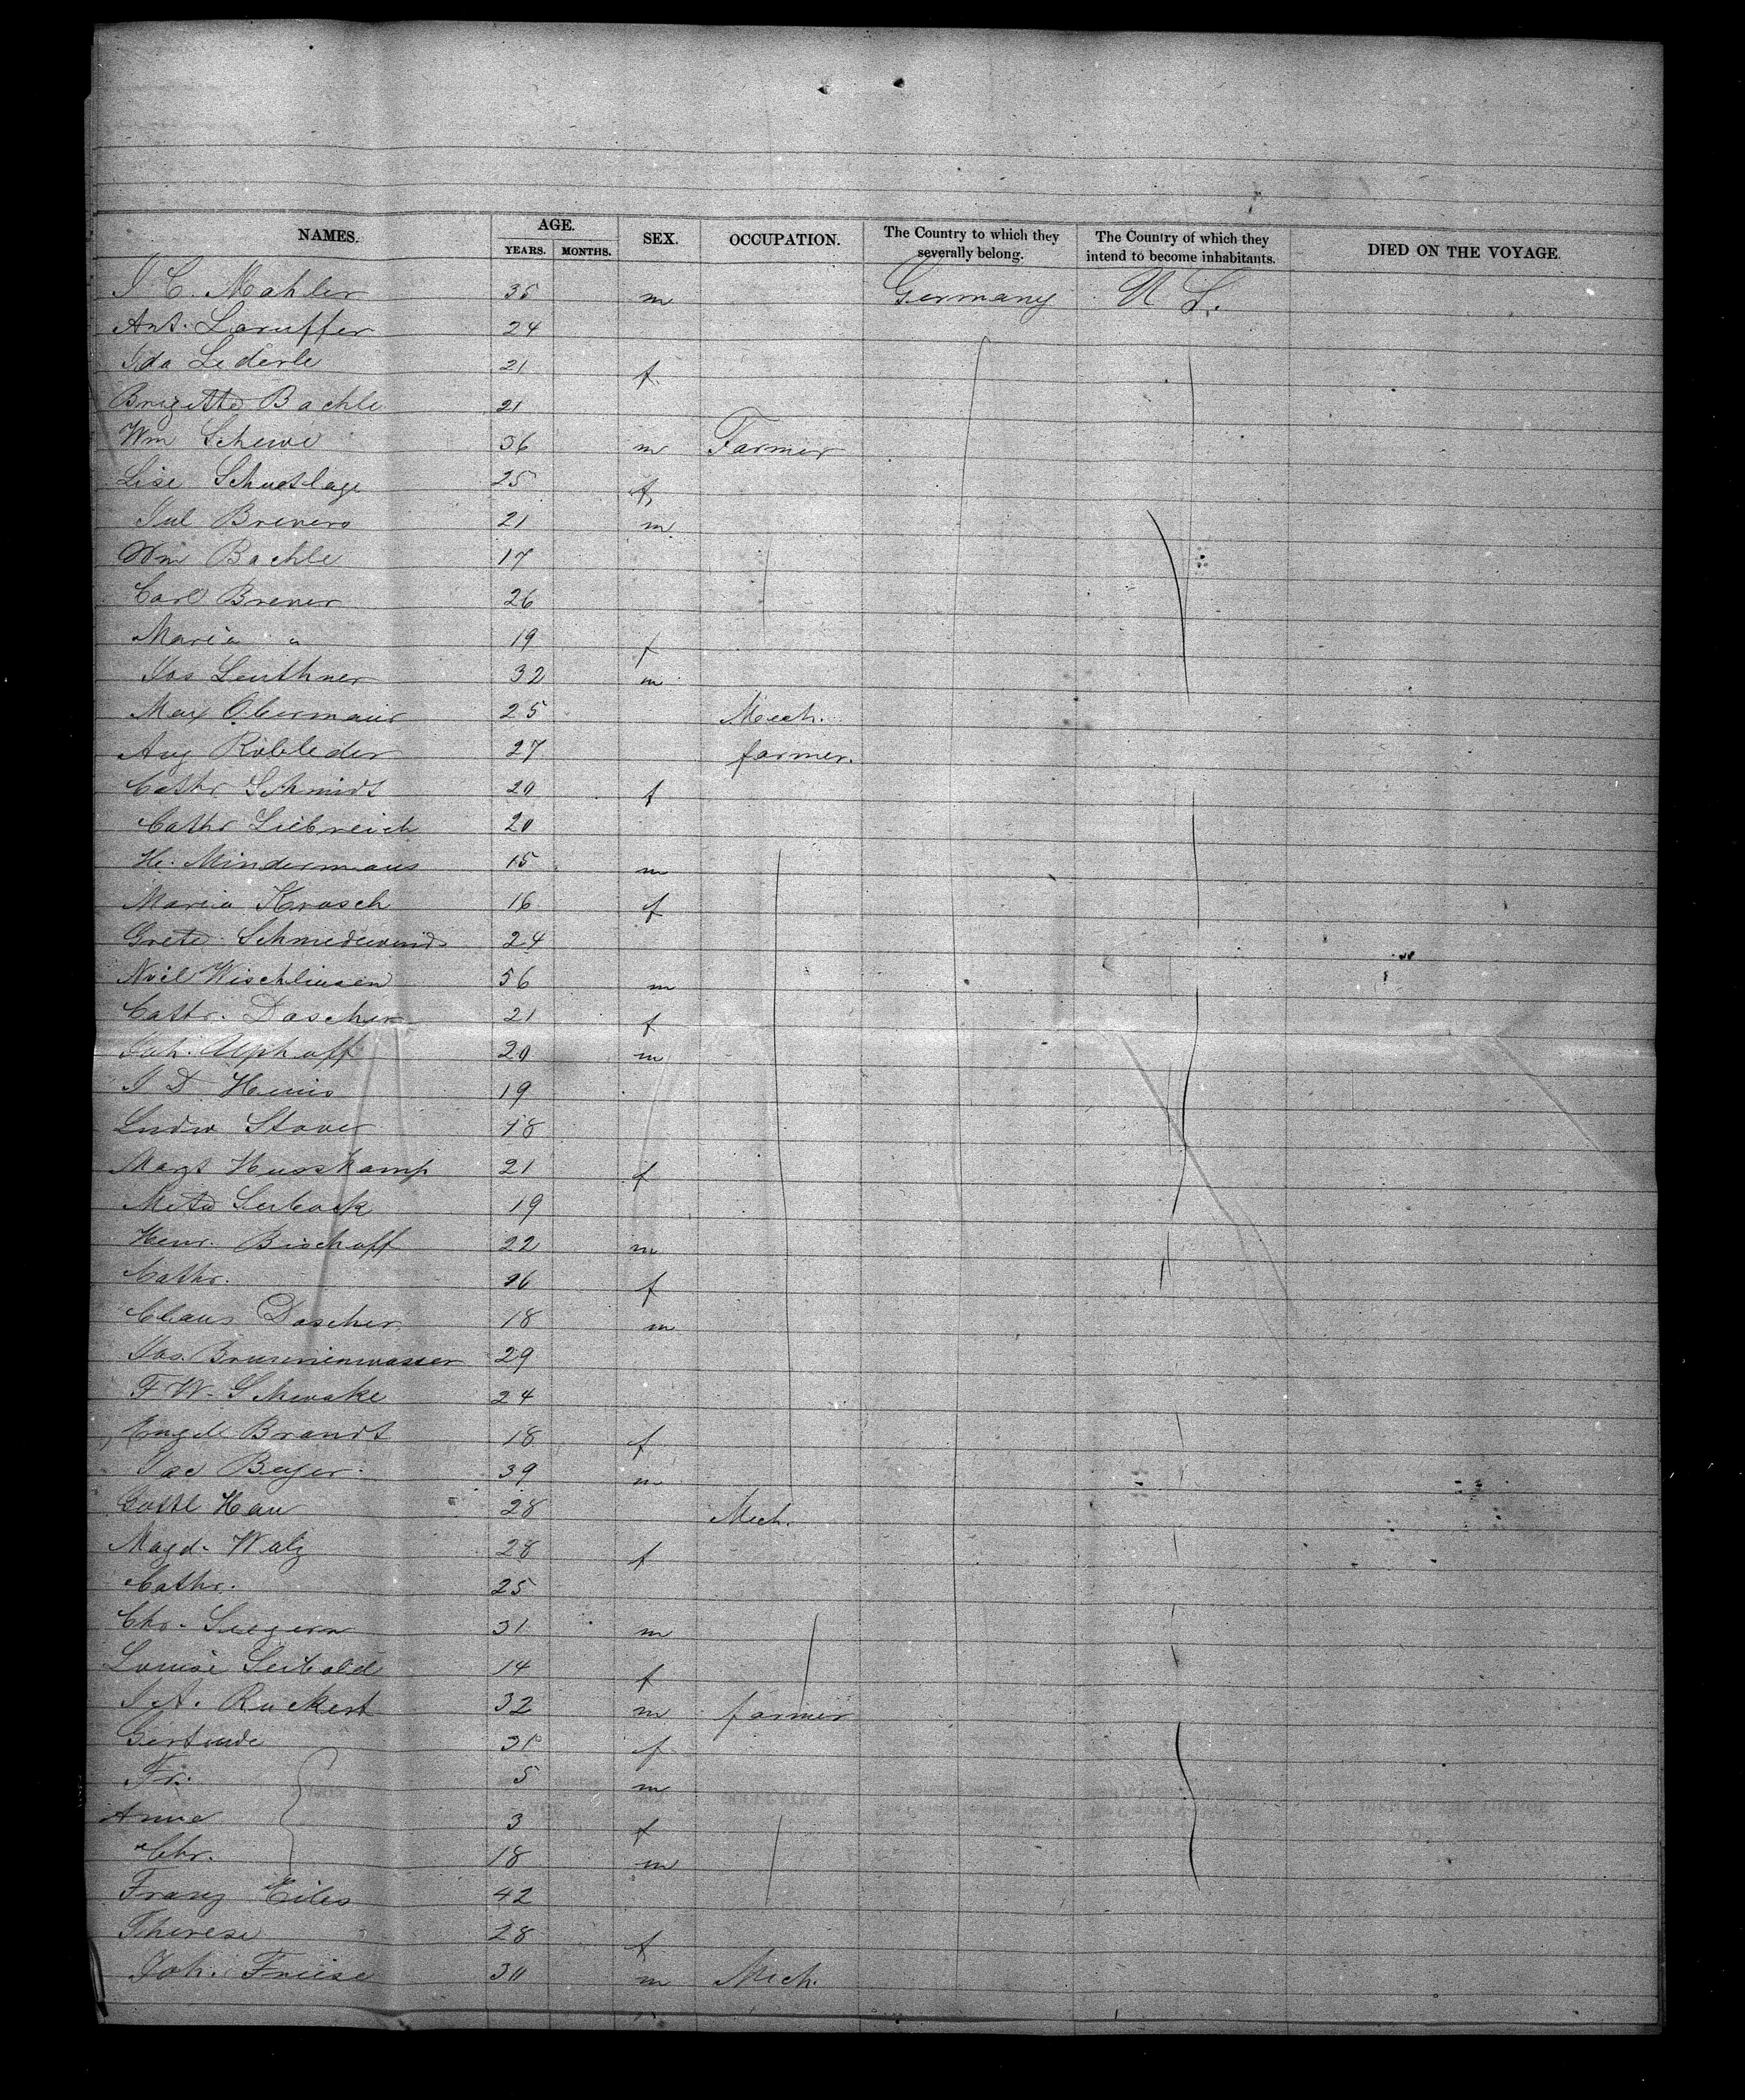 NAMES. AGE. SEX. OCCUPATION. The Country to which they severally belong. The Country of which they intend to become inhabitants. DIED ON THE VOYAGE.
YEARS. MONTHS.
J C. Mahler 35 m Germany U S.
Ant. 24
Ida Lederle 21 f.
Brigitte Bachle 21
Wm Schewe 36 m Farmer
Lise 25 f
Jul Brewers 21 m
Wm Bachle 17
Carl Brewer 26
Maria " 19 f
Jos Leuthner 32 m
Max Obermair 25 Mech.
Aug 27 farmer.
Cathr Schmidt 20 f
Cathr Liebreich 20
He. Mindermans 15 m
Maria Krosch 16 f
Grete 24
56 m
Cathr. Doscher 21 f
Joh. 20 m
J D 19
Ludw Stover 18
Margt Husskamp 21 f
Meta 19
Henr. Bischoff 22 m
Cathr. 16 f
Claus Doscher 18 m
Jos. Brunnenwasser 29
F W. Schwake 24
Engel Brandt 18 f
Jac Beyer. 39 m
Gottl Hau 28 Mech.
Magd. Walz 28 f
Cathr. 25
Chr. 31 m
Louise Seibold 14 f
J A. Ruckert 32 m farmer
Gertrude 31 f
Fr. 5 m
Anna 3 f
Chr. 18 m
Franz Eiles 42
Therese 28 f
Joh. Friese 30 m Mech.